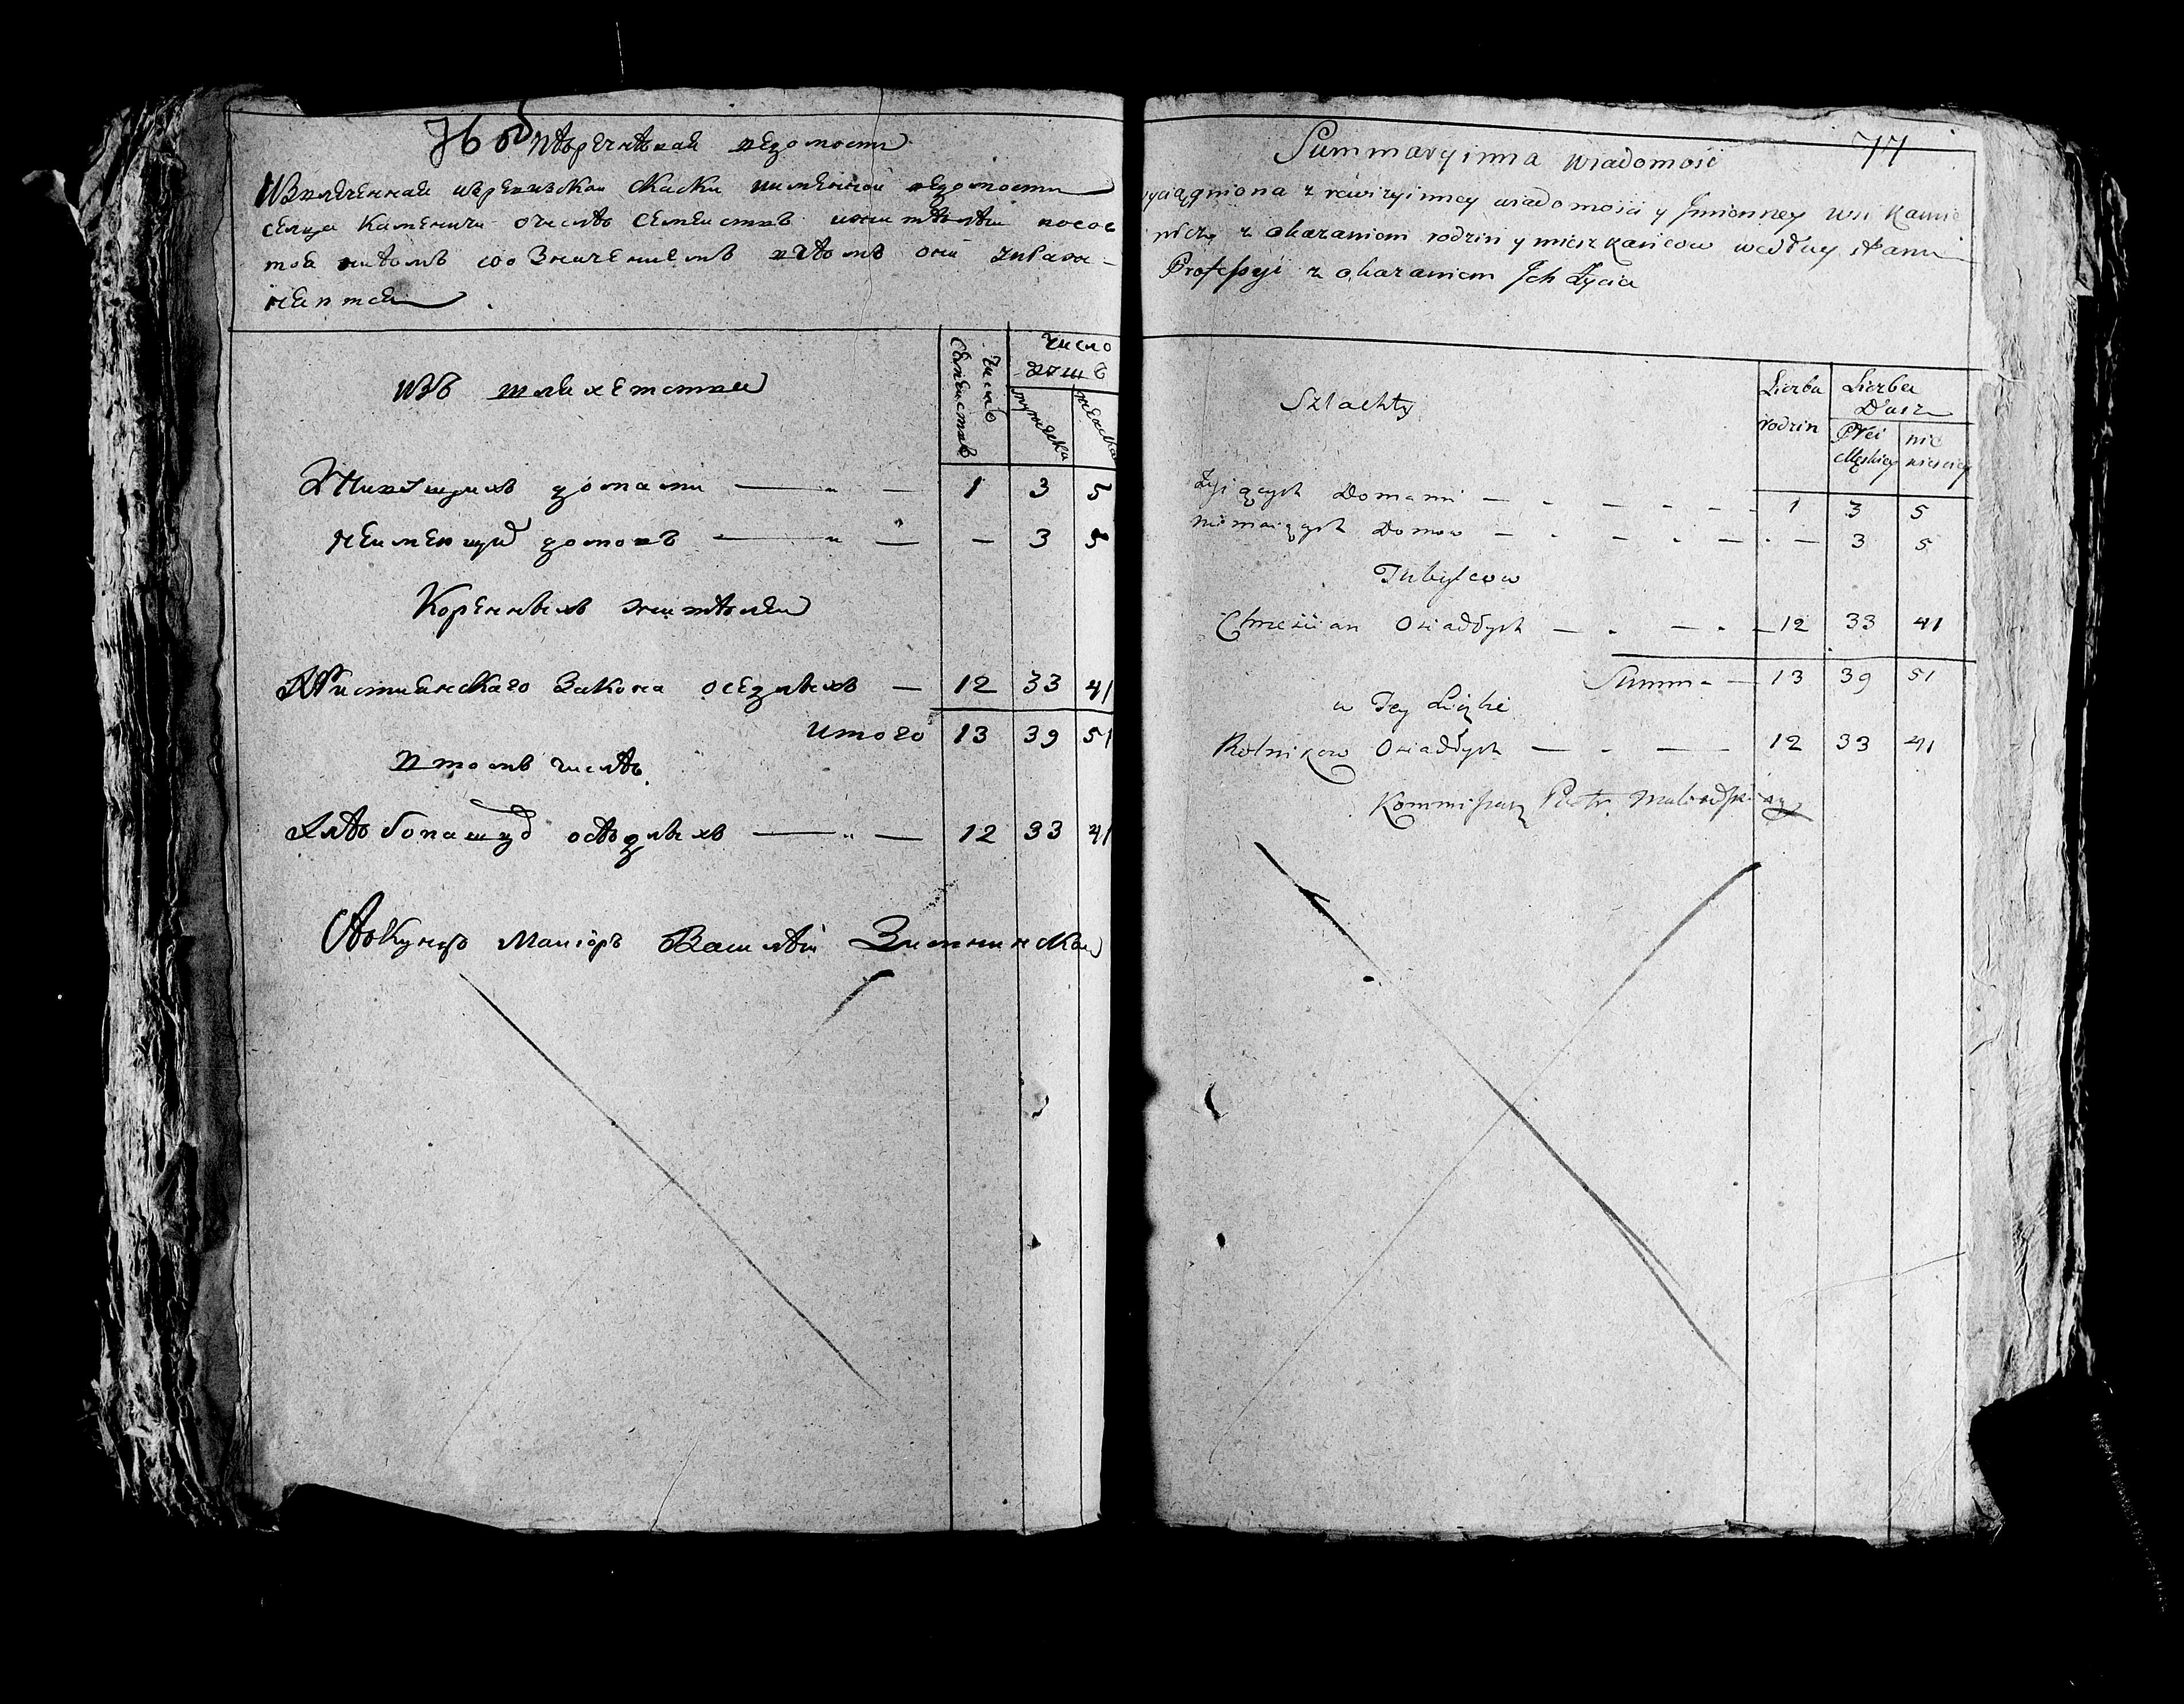 76 об
Перечневая ведомость
Извлеченная изревизской сказки именной ведомости
сельца Каменичи очисле семействъ ижителей
чемъ они
Изъ шляхетства
Число семействъ
Число душъ
мужеска
женска
Живущихъ домами — „ — 1 3 5
Неимеющих домовъ — „ — — 3 5
Коренныхъ жителей
Христианскаго Закона оседлыхъ — 12 33 41
итого 13 39 51
втомъ числе
Хлебопашцовъ оседлыхъ — „ — 12 33 41
Маиоръ Василей
77
Summaryinna wiadomość
wyciągniona z rewizyinney wiadomości y Jmienney wsi Kamie
niczy z okazaniem rodzin y mieszkańcow według stanu
Professyi z okazaniem Jch życia
Szlachty
Liczba rodzin
Liczba Dusz
Płci Męskiey
nie wiesciey
Żyiących Domami — - — - — - 1 3 5
niemaiących Domow — - — - — - — 3 5
Tubylcow
Chrześcian Osiadłych — - — - — 12 33 41
Summa — 13 39 51
w Tey Liczbie
Rolnikow Osiadłych — - — 12 33 41
Kommissarz Piotr